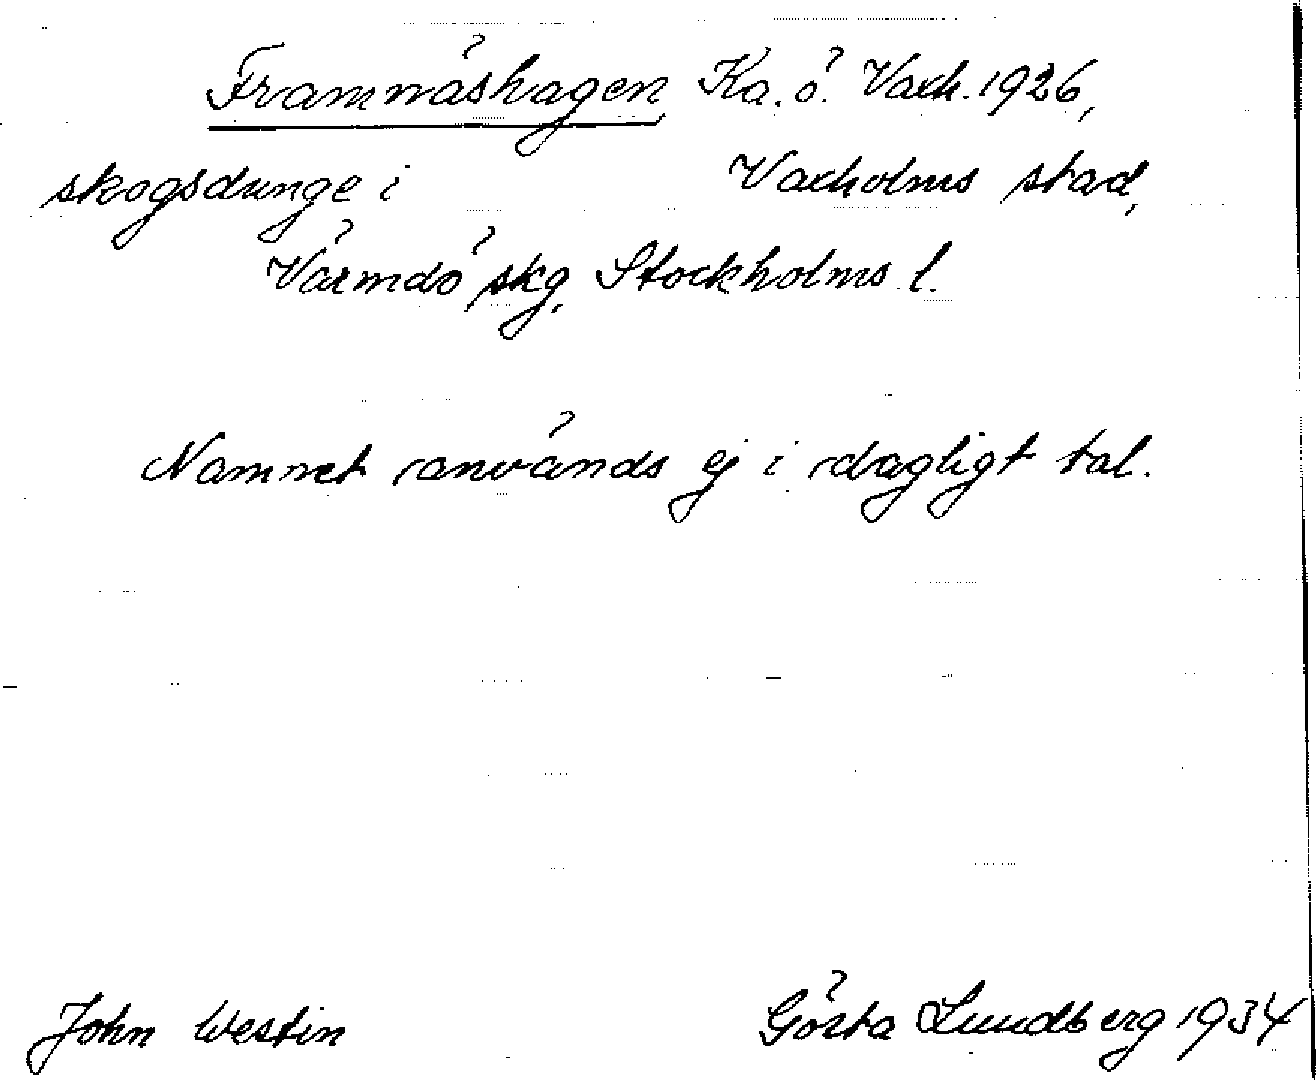 Framnäshagen Ka. ö. Vaxh. 1926,
skogsdunge i Vaxholms stad,
Värmdö skg, Stockholms l.
Namnet används ej i dagligt tal.
John Westin Gösta Lundberg 1934